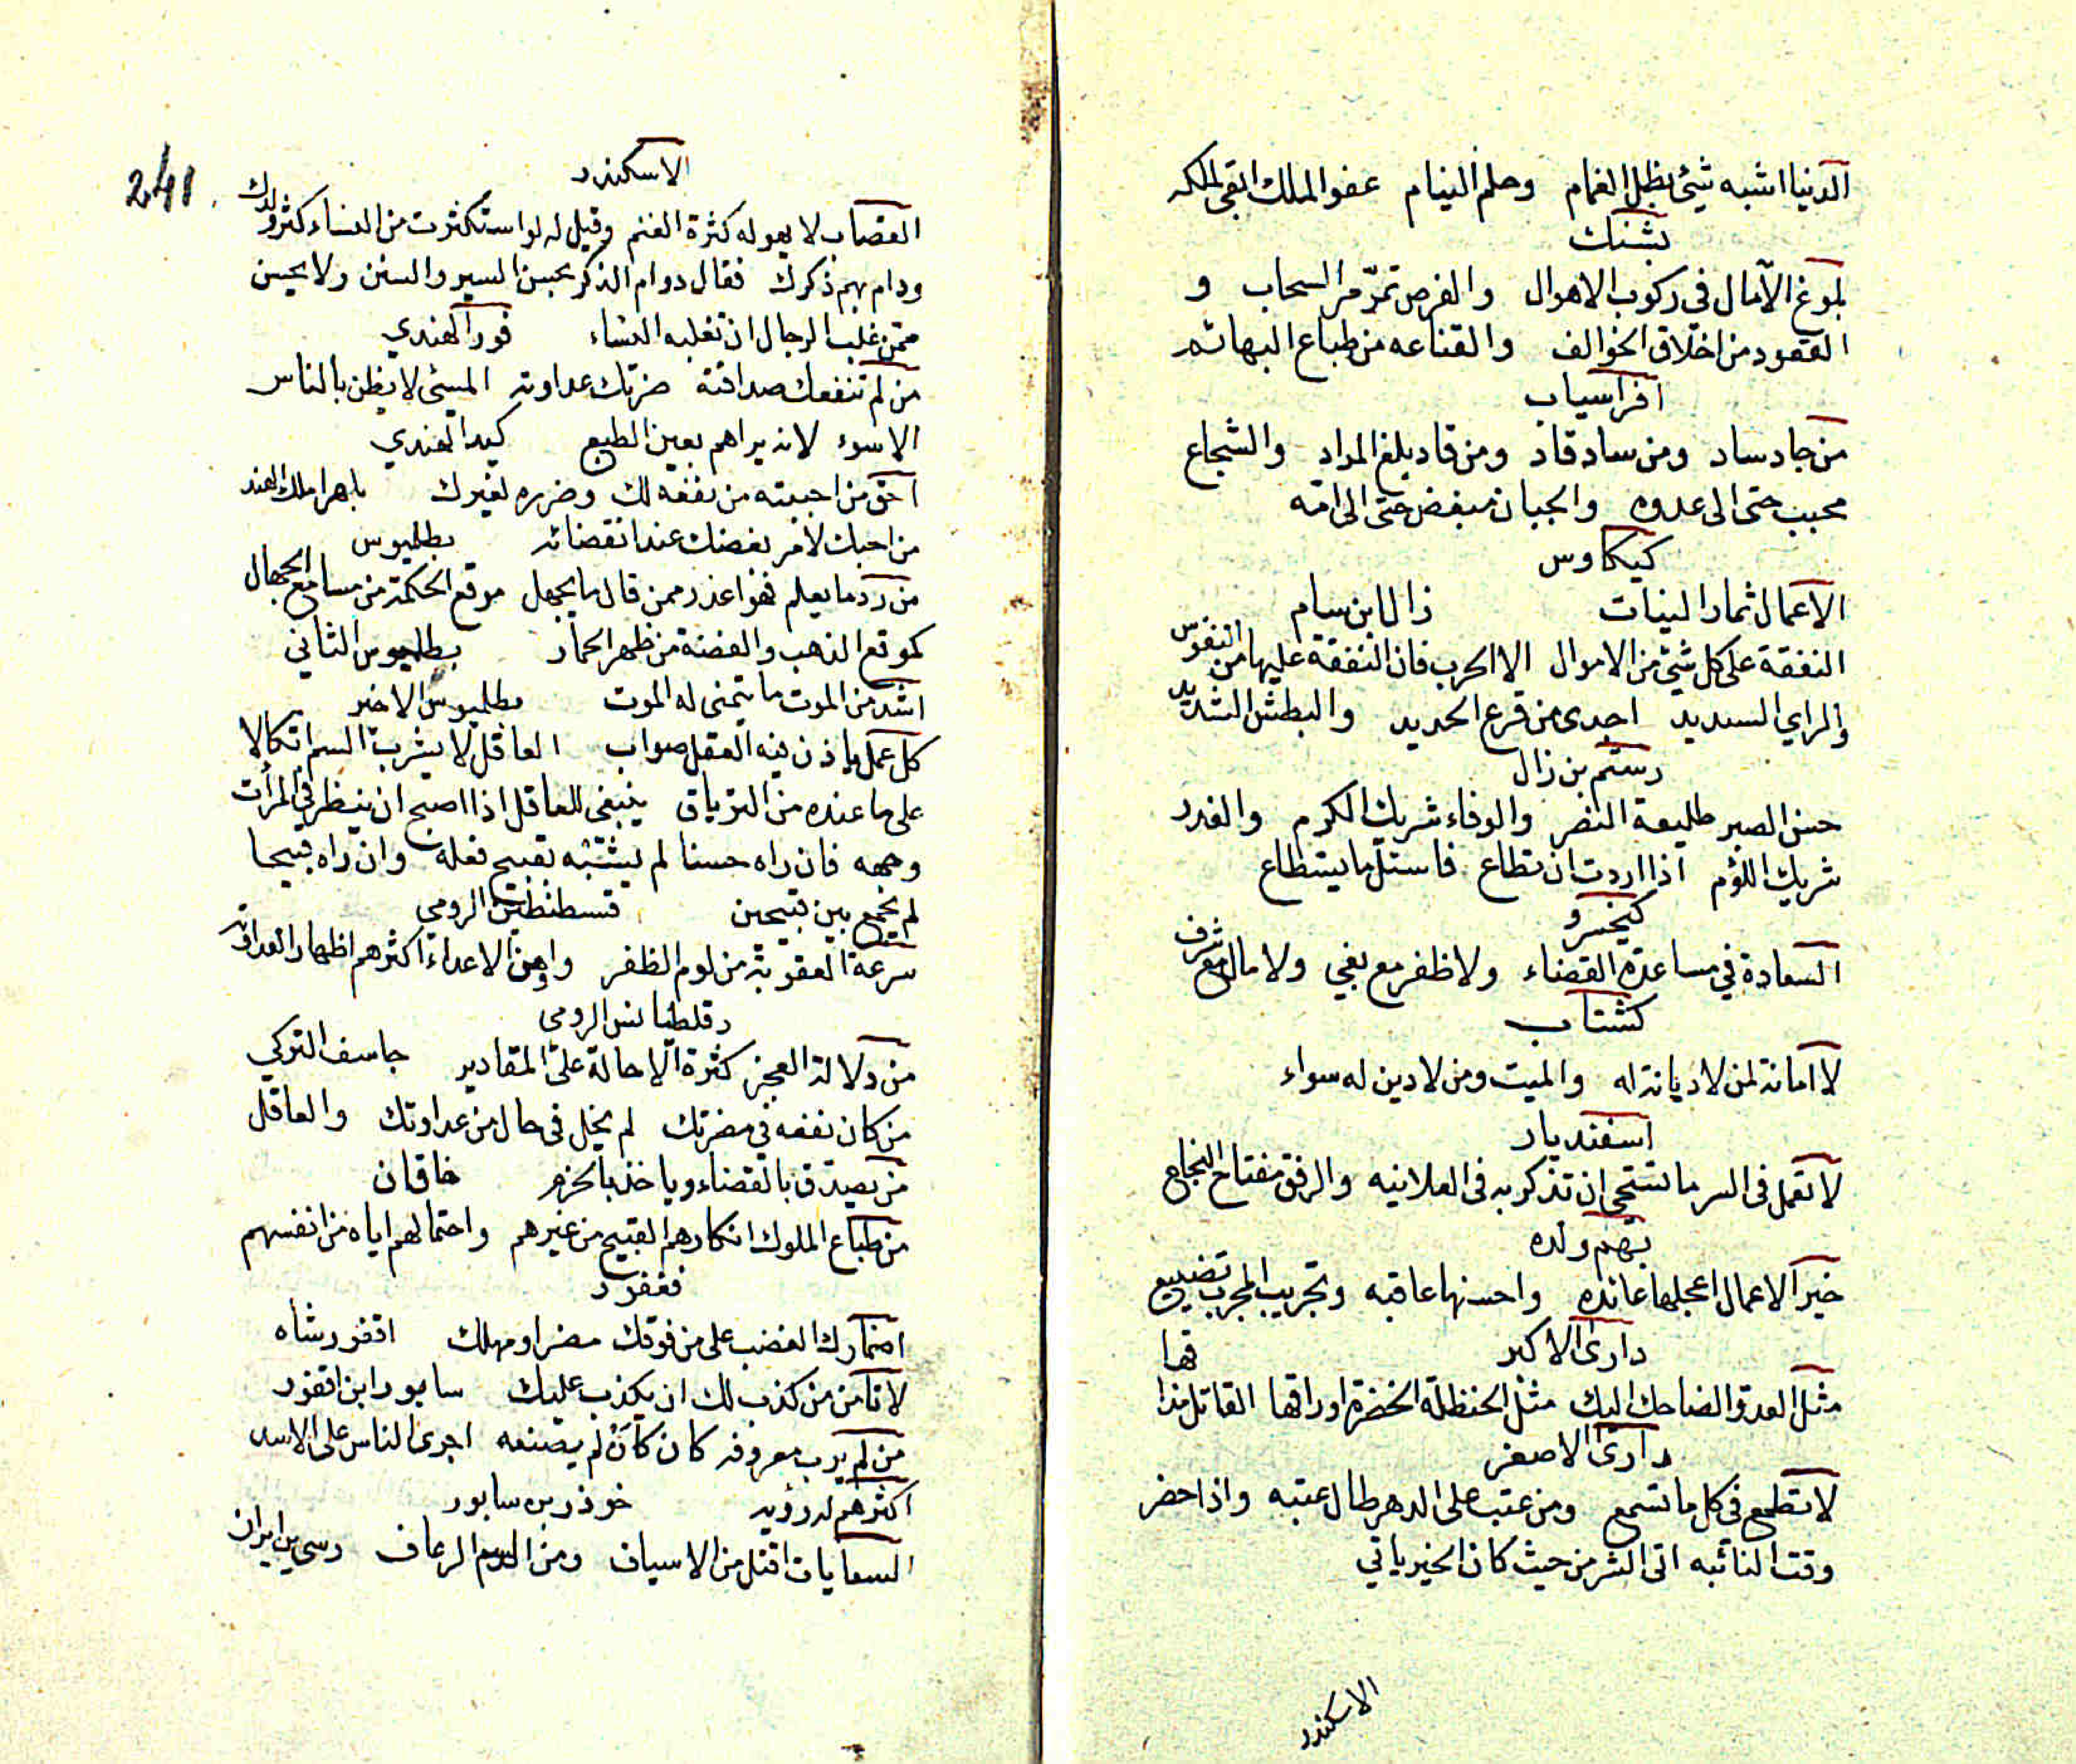 الدنيا اشبه شئ بظل الغمام وحلم النيام عفو الملك ابقى لملكه
بشنك
بلوغ الآمال فى ركوب الاهوال والفرص تمرّ مر السحاب و
القعود من اخلاق الخوالف والقناعه من طباع البهائم
افراسياب
من جاد ساد ومن ساد قاد ومن قاد بلغ المراد والشجاع
محبب حتى الى عدوه والجبان مبغض حتى الى امّه
كيكاوس
الاعمال ثمار النيات زال ابن سام
النفقة على كل شئ من الاموال الا الحرب فان النفقة عليها من النفوس
والراي السديد اجدى من قرع الحديد والبطش الشديد
رستم بن زال
حسن الصبر طليعة النصر والوفاء شريك الكرم والغدر
شريك اللؤم اذا اردت ان تطاع فاسئل ما يستطاع
كيخسرو
السعادة في مساعدة القضاء ولا ظفر مع بغي ولا مال مع شرف
كشتاب
لا امانة لمن لا ديانة له والميت ومن لا دين له سواء
اسفنديار
لا تعمل فى السر ما تستحى ان تذكر به فى العلانيه والرفق مفتاح النجاح
بهمن ولده
خير الاعمال اعجلها عائده واحسنها عاقبه وتجريب المجرب تضييع
دارى الاكبر
مثل العدو الضاحك اليك مثل الحنظلة الخضرة اوراقها القاتل مذاقها
دارى الاصغر
لا تطمع فى كل ما تسمع ومن عتب على الدهر طال عتبه واذا حضر
وقت النائبه اتى الشر من حيث كان الخير ياتي
الاسكندر
241
الاسكندر
القصاب لا يهوله كثرة الغنم وقيل له لو استكثرت من النساء كثر ولدك
ودام بهم ذكرك فقال دوام الذكر بحسن السير والسنن ولا يحسن
ممن غلب الرجال ان تغلبه النساء فور الهندي
من لم تنفعك صداقته ضرتك عداوته المسئ لا يظن بالناس
الا سوء لانه يراهم بعين الطبع كيد الهندي
احق من احببته من نفعه لك وضرره لغيرك باهرا ملك الهند
من احبك لامر بغضك عند انقضائه بطلميوس
من رد ما يعلم فهو اعذر ممن قال ما يجهل موقع الحكمة من مسامع الجهال
كموقع الذهب والفضة من ظهر الحمار بطلميوس الثاني
اشد من الموت ما يتمنى له الموت بطلميوس الاخير
كل عمل ياذن فيه العقل صواب العاقل لا يشرب السم اتكالا
على ما عنده من الترياق ينبغى للعاقل اذا اصبح ان ينظر في المرات
وجهه فان راه حسنا لم يشنه بقبيح فعله وان راه قبيحا
لم يجمع بين قبيحين قسطنطين الرومي
سرعة العقوبة من لوم الظفر واهون الاعداء اكثرهم اظهار العداوته
دقلطيانس الرومى
من دلالة العجز كثرة الاحالة على المقادير جاسف التركي
من كان نفعه في مضرتك لم يخل فى حال من عداوتك والعاقل
من يصدق بالقضاء وياخذ بالحزم خاقان
من طباع الملوك انكارهم القبيح من غيرهم واحتمالهم اياه من انفسهم
فغفور
اضمارك الغضب على من فوقك مضر او مهلك اقفور شاه
لا تامن من كذب لك ان يكذب عليك سابور ابن اقفور
من لم يرب معروفه كان كان لم يصنعه اجرى الناس على الاسد
اكثرهم له رؤيه خوذر بن سابور
السعايات اقتل من الاسياف ومن السم الزعاف رسى بن ايران